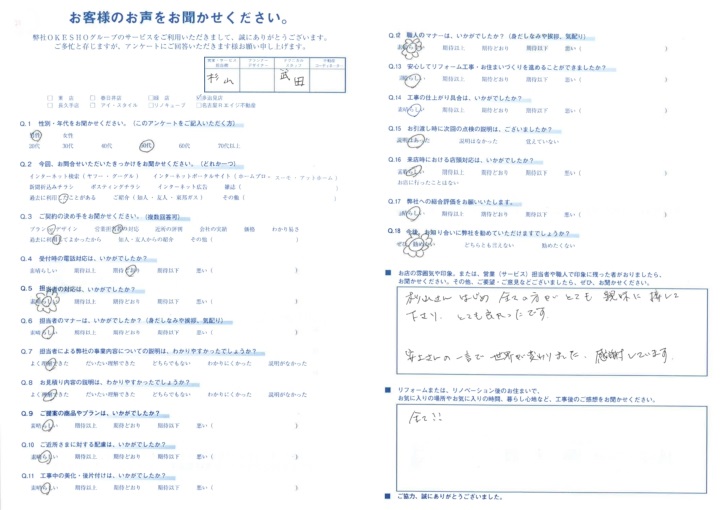 お客様のお声をお聞かせください。
弊社OKESHOグループのサービスをご利用いただきまして、誠にありがとうございます。
ご多忙と存じますが、アンケートにご回答いただきます様お願い申し上げます。
杉山
武田
Q.1 性別・年代をお聞かせください。（このアンケートをご記入いただく方）
男性 女性
20代 30代 40代 50代 60代 70代以上
Q.2 今回、お問合せいただいたきっかけをお聞かせください。（どれか一つ）
インターネット検索（ヤフー・グーグル） インターネットポータルサイト（ホームプロ・スーモ・アットホーム）
新聞折込みチラシ ポスティングチラシ インターネット広告 雑誌（ ）
過去に利用したことがある ご紹介（知人・友人・東邦ガス） その他（ ）
Q.3 ご契約の決め手をお聞かせください。（複数回答可）
プラン・デザイン 営業担当者の対応 近所の評判 会社の実績 価格 わかり易さ
過去に利用してよかったから 知人・友人からの紹介 その他（ ）
Q.4 受付時の電話対応は、いかがでしたか？
素晴らしい 期待以上 期待どおり 期待以下 悪い（ ）
Q.5 担当者の対応は、いかがでしたか？
素晴らしい 期待以上 期待どおり 期待以下 悪い（ ）
Q.6 担当者のマナーは、いかがでしたか？（身だしなみや挨拶、気配り）
素晴らしい 期待以上 期待どおり 期待以下 悪い（ ）
Q.7 担当者による弊社の事業内容についての説明は、わかりやすかったでしょうか？
よく理解できた だいたい理解できた どちらでもない わかりにくかった 説明がなかった
Q.8 お見積り内容の説明は、わかりやすかったでしょうか？
よく理解できた だいたい理解できた どちらでもない わかりにくかった 説明がなかった
Q.9 ご提案の商品やプランは、いかがでしたか？
素晴らしい 期待以上 期待どおり 期待以下 悪い（ ）
Q.10 ご近所さまに対する配慮は、いかがでしたか？
素晴らしい 期待以上 期待どおり 期待以下 悪い（ ）
Q.11 工事中の美化・後片付けは、いかがでしたか？
素晴らしい 期待以上 期待どおり 期待以下 悪い（ ）
Q.12 職人のマナーは、いかがでしたか？（身だしなみや挨拶、気配り）
素晴らしい 期待以上 期待どおり 期待以下 悪い（ ）
Q.13 安心してリフォーム工事・お住まいづくりを進めることができましたか？
素晴らしい 期待以上 期待どおり 期待以下 悪い（ ）
Q.14 工事の仕上がり具合は、いかがでしたか？
素晴らしい 期待以上 期待どおり 期待以下 悪い（ ）
Q.15 お引渡し時に次回の点検の説明は、ございましたか？
説明はあった 説明はなかった 覚えていない
Q.16 来店時における店舗対応は、いかがでしたか？
素晴らしい 期待以上 期待どおり 期待以下 悪い（ ）
お店に行ったことはない
Q.17 弊社への総合評価をお願いいたします。
素晴らしい 期待以上 期待どおり 期待以下 悪い（ ）
Q.18 今後、お知り合いに弊社を勧めていただけますでしょうか？
ぜひ、勧めたい どちらとも言えない 勧めたくない
■ お店の雰囲気や印象、または、営業（サービス）担当者や職人で印象に残った者がおりましたら、
お聞かせください。その他、ご要望・ご意見などございましたら、ぜひ、お聞かせください。
杉山さんはじめ 全ての方がとても 親味に接して
下さり、とても良かったです。
さんの一言で世界が変わりました。感謝しています。
■ リフォームまたは、リノベーション後のお住まいで、
お気に入りの場所やお気に入りの時間、暮らし心地など、工事後のご感想をお聞かせください。
全て!!
■ ご協力、誠にありがとうございました。